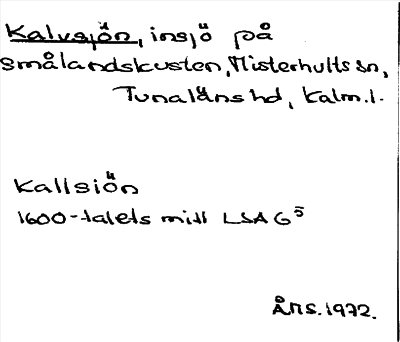 Kalvsjön, insjö på
smålandskusten, Misterhults sn,
Tunaläns hd, Kalm. l.
Kallsiön
1600-talets mitt LSA G5
ÅMS. 1972.